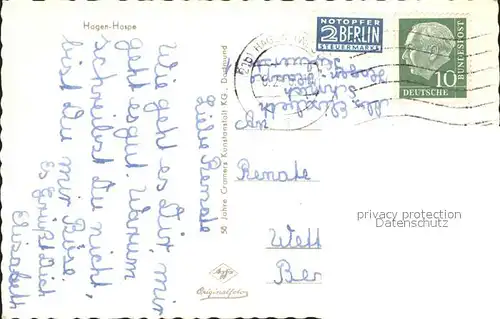 Hagen-Haspe
Liebe Renate
Wie geht es Dir, mir
geht es gut. Warum
schreibst Du nicht,
bist Du mir Böse.
Es grüßt Dich
Elisabeth
50 Jahre Cramers Kunstanstalt KG. Dortmund
Agfa
Originalfoto
NOTOPFER
2 BERLIN
STEUERMARKE
10
DEUTSCHE
BUNDESPOST
(21b) HAGEN
Abs. Elisabeth
Hagen Haspe
Renate
Wett
Ber
privacy protection
Datenschutz